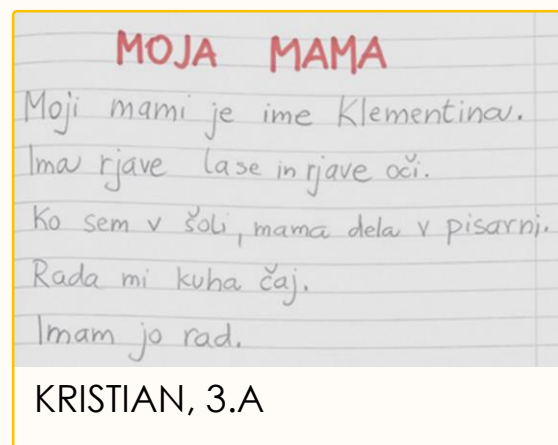 MOJA MAMA
Moji mami je ime Klementina.
Ima rjave lase in rjave oči.
Ko sem v šoli, mama dela v pisarni.
Rada mi kuha čaj.
Imam jo rad.
KRISTIAN, 3.A